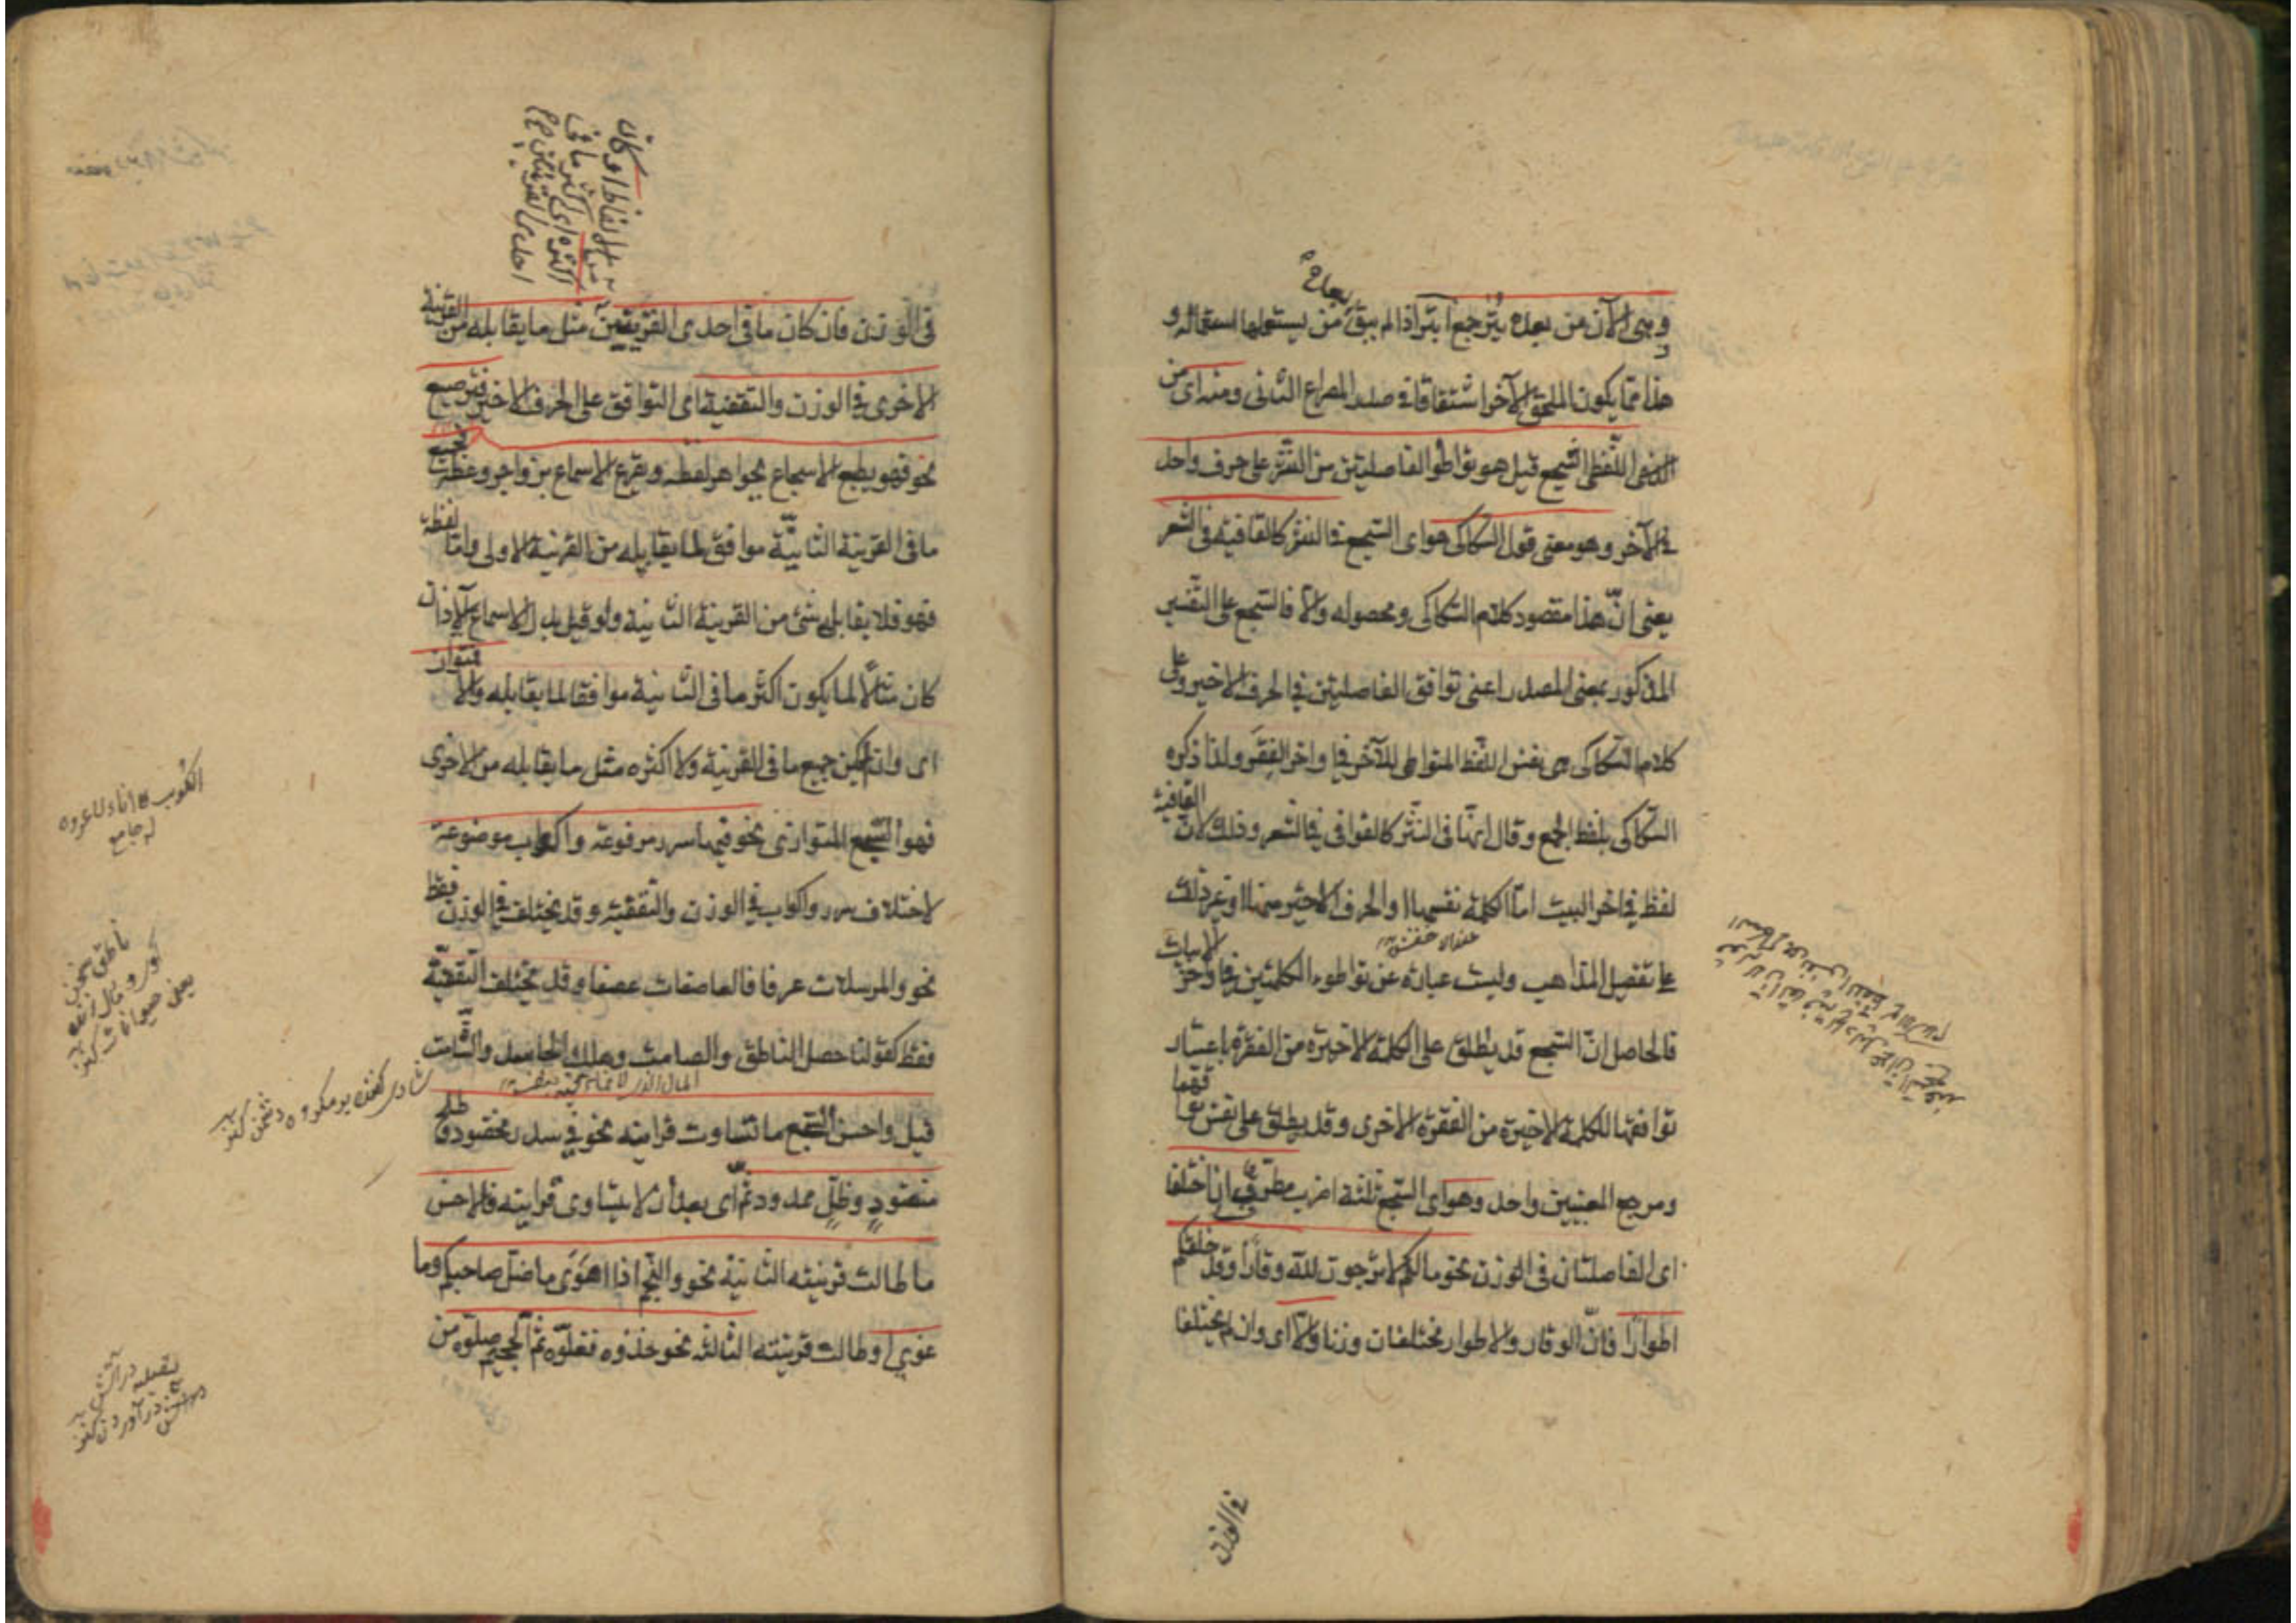 وهى الآن من بعده بُتْر جمع ابتر اذا لم يبق من يستعملها استعماله و
هذا مما يكون الملحق الآخر اشتقاقا فى صدر المصراع الثانى ومنه اى من
اللفظى السجع قيل هو تواطؤ الفاصلتين من النثر على حرف واحد
فى الآخر وهو معنى قول السكاكى هو اى السجع فى النثر كالقافية فى الشعر
يعنى انّ هذا مقصود كلام السكاكى ومحصوله والا فالسجع على التفسير
المذكور بمعنى المصدر اعنى توافق الفاصلتين فى الحرف الاخير وعلى
كلام السكاكى هى نفس اللفظ المتواطى للآخر فى اواخر الفقر ولذا ذكره
السكاكى بلفظ الجمع وقال انّها فى النثر كالقوافى فى الشعر وذلك لانّ القافية
لفظ فى اخر البيت امّا الكلمة نفسها او الحرف الاخير منها او غير ذلك
عند الاخفش
على تفصيل المذاهب وليست عبارة عن تواطوء الكلمتين فى اواخر الابيات
فالحاصل انّ السجع قد يطلق على الكلمة الاخيرة من الفقرة باعتبار
توافقها للكلمة الاخيرة من الفقرة الاخرى وقد يطلق على نفس توافقهما
ومرجع المعنيين واحد وهو اى السجع ثلثة اضرب مطرّف ان اختلفا
اى الفاصلتان فى الوزن نحو مالكم لا ترجون لله وقارا وقد خلقكم
اطوارا فانّ الوقار والاطوار مختلفان وزنا والّا اى وان لم يختلفا
فى الوزن
فى الوزن فان كان ما فى احدى القرينتين مثل ما يقابله من القرينة
الاخرى فى الوزن والتقفية اى التوافق على الحرف الاخير فترصيع
نحو فهو يطبع الاسجاع بجواهر لفظه ويقرع الاسماع بزواجر وعظه فجميع
ما فى القرينة الثانية موافق لما يقابله من القرينة الاولى وامّا لفظة
فهو فلا يقابله شئ من القرينة الثانية ولو قيل بدل الاسماع الآذان
كان مثالًا لما يكون اكثر ما فى الثانية موافقا لما يقابله والّا فمتوازن
اى وان لم يكن جميع ما فى القرينة ولا اكثره مثل ما يقابله من الاخرى
فهو السجع المتوازى نحو فيها سرر مرفوعة واكواب موضوعة
لاختلاف سرر واكواب فى الوزن والتقفية وقد يختلف فى الوزن فقط
نحو والمرسلات عرفا فالعاصفات عصفا وقد يختلف التقفية
فقط كقولنا حصل الناطق والصامت وهلك الحاسد والشامت
قيل واحسن السجع ما تساوت قراينه نحو فى سدر مخضود وطلح
منضودٍ وظلٍّ ممدود ثمّ اى بعد أن لا يتساوى قراينه فالاحسن
ما طالت قرينته الثانية نحو والنجم اذا هَوَى ما ضلّ صاحبكم وما
غوى او طالت قرينته الثالثة نحو خذوه فغلّوه ثمّ الجحيم صلّوه من
من الالفاظ او كان
اكثره اى اكثر ما فى
احدى القرينتين
الكوب اناء لا عروة
له جامع